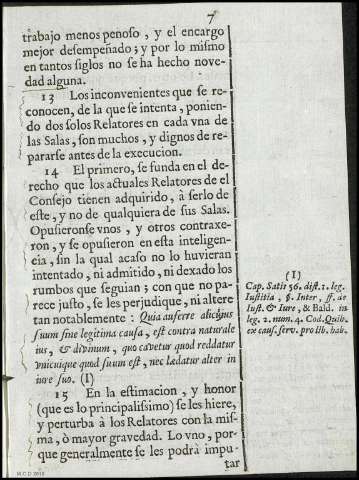 7
trabajo menos penoso, y el encargo
mejor desempeñado; y por lo mismo
en tantos siglos no se ha hecho nove-
dad alguna.
13 Los inconvenientes que se re-
conocen, de la que se intenta, ponien-
do dos solos Relatores en cada vna de
las Salas, son muchos, y dignos de re-
pararse antes de la execucion.
14 El primero, se funda en el de-
recho que los actuales Relatores de el
Consejo tienen adquirido, à serlo de
este, y no de qualquiera de sus Salas.
Opusieronse vnos, y otros contraxe-
ron, y se opusieron en esta inteligen-
cia, sin la qual acaso no lo huvieran
intentado, ni admitido, ni dexado los
rumbos que seguian; con que no pa-
rece justo, se les perjudique, ni altere
tan notablemente: Quia auferre alicujus
suum sine legitima causa, est contra naturale
ius, & divinum, quo cavetur quod reddatur
vnicuique quod suum est, nec lædatur alter in
iure suo. (I)
15 En la estimacion, y honor
(que es lo principalissimo) se les hiere,
y perturba à los Relatores con la mis-
ma, ò mayor gravedad. Lo vno, por-
que generalmente se les podrà impu-
tar
(I)
Cap. Satis 56. dist. 1. leg.
Iustitia, §. Inter, ff. de
Iust. & Iure, & Bald. in
leg. 2. num. 4. Cod. Quib.
ex caus. serv. pro lib. hab.